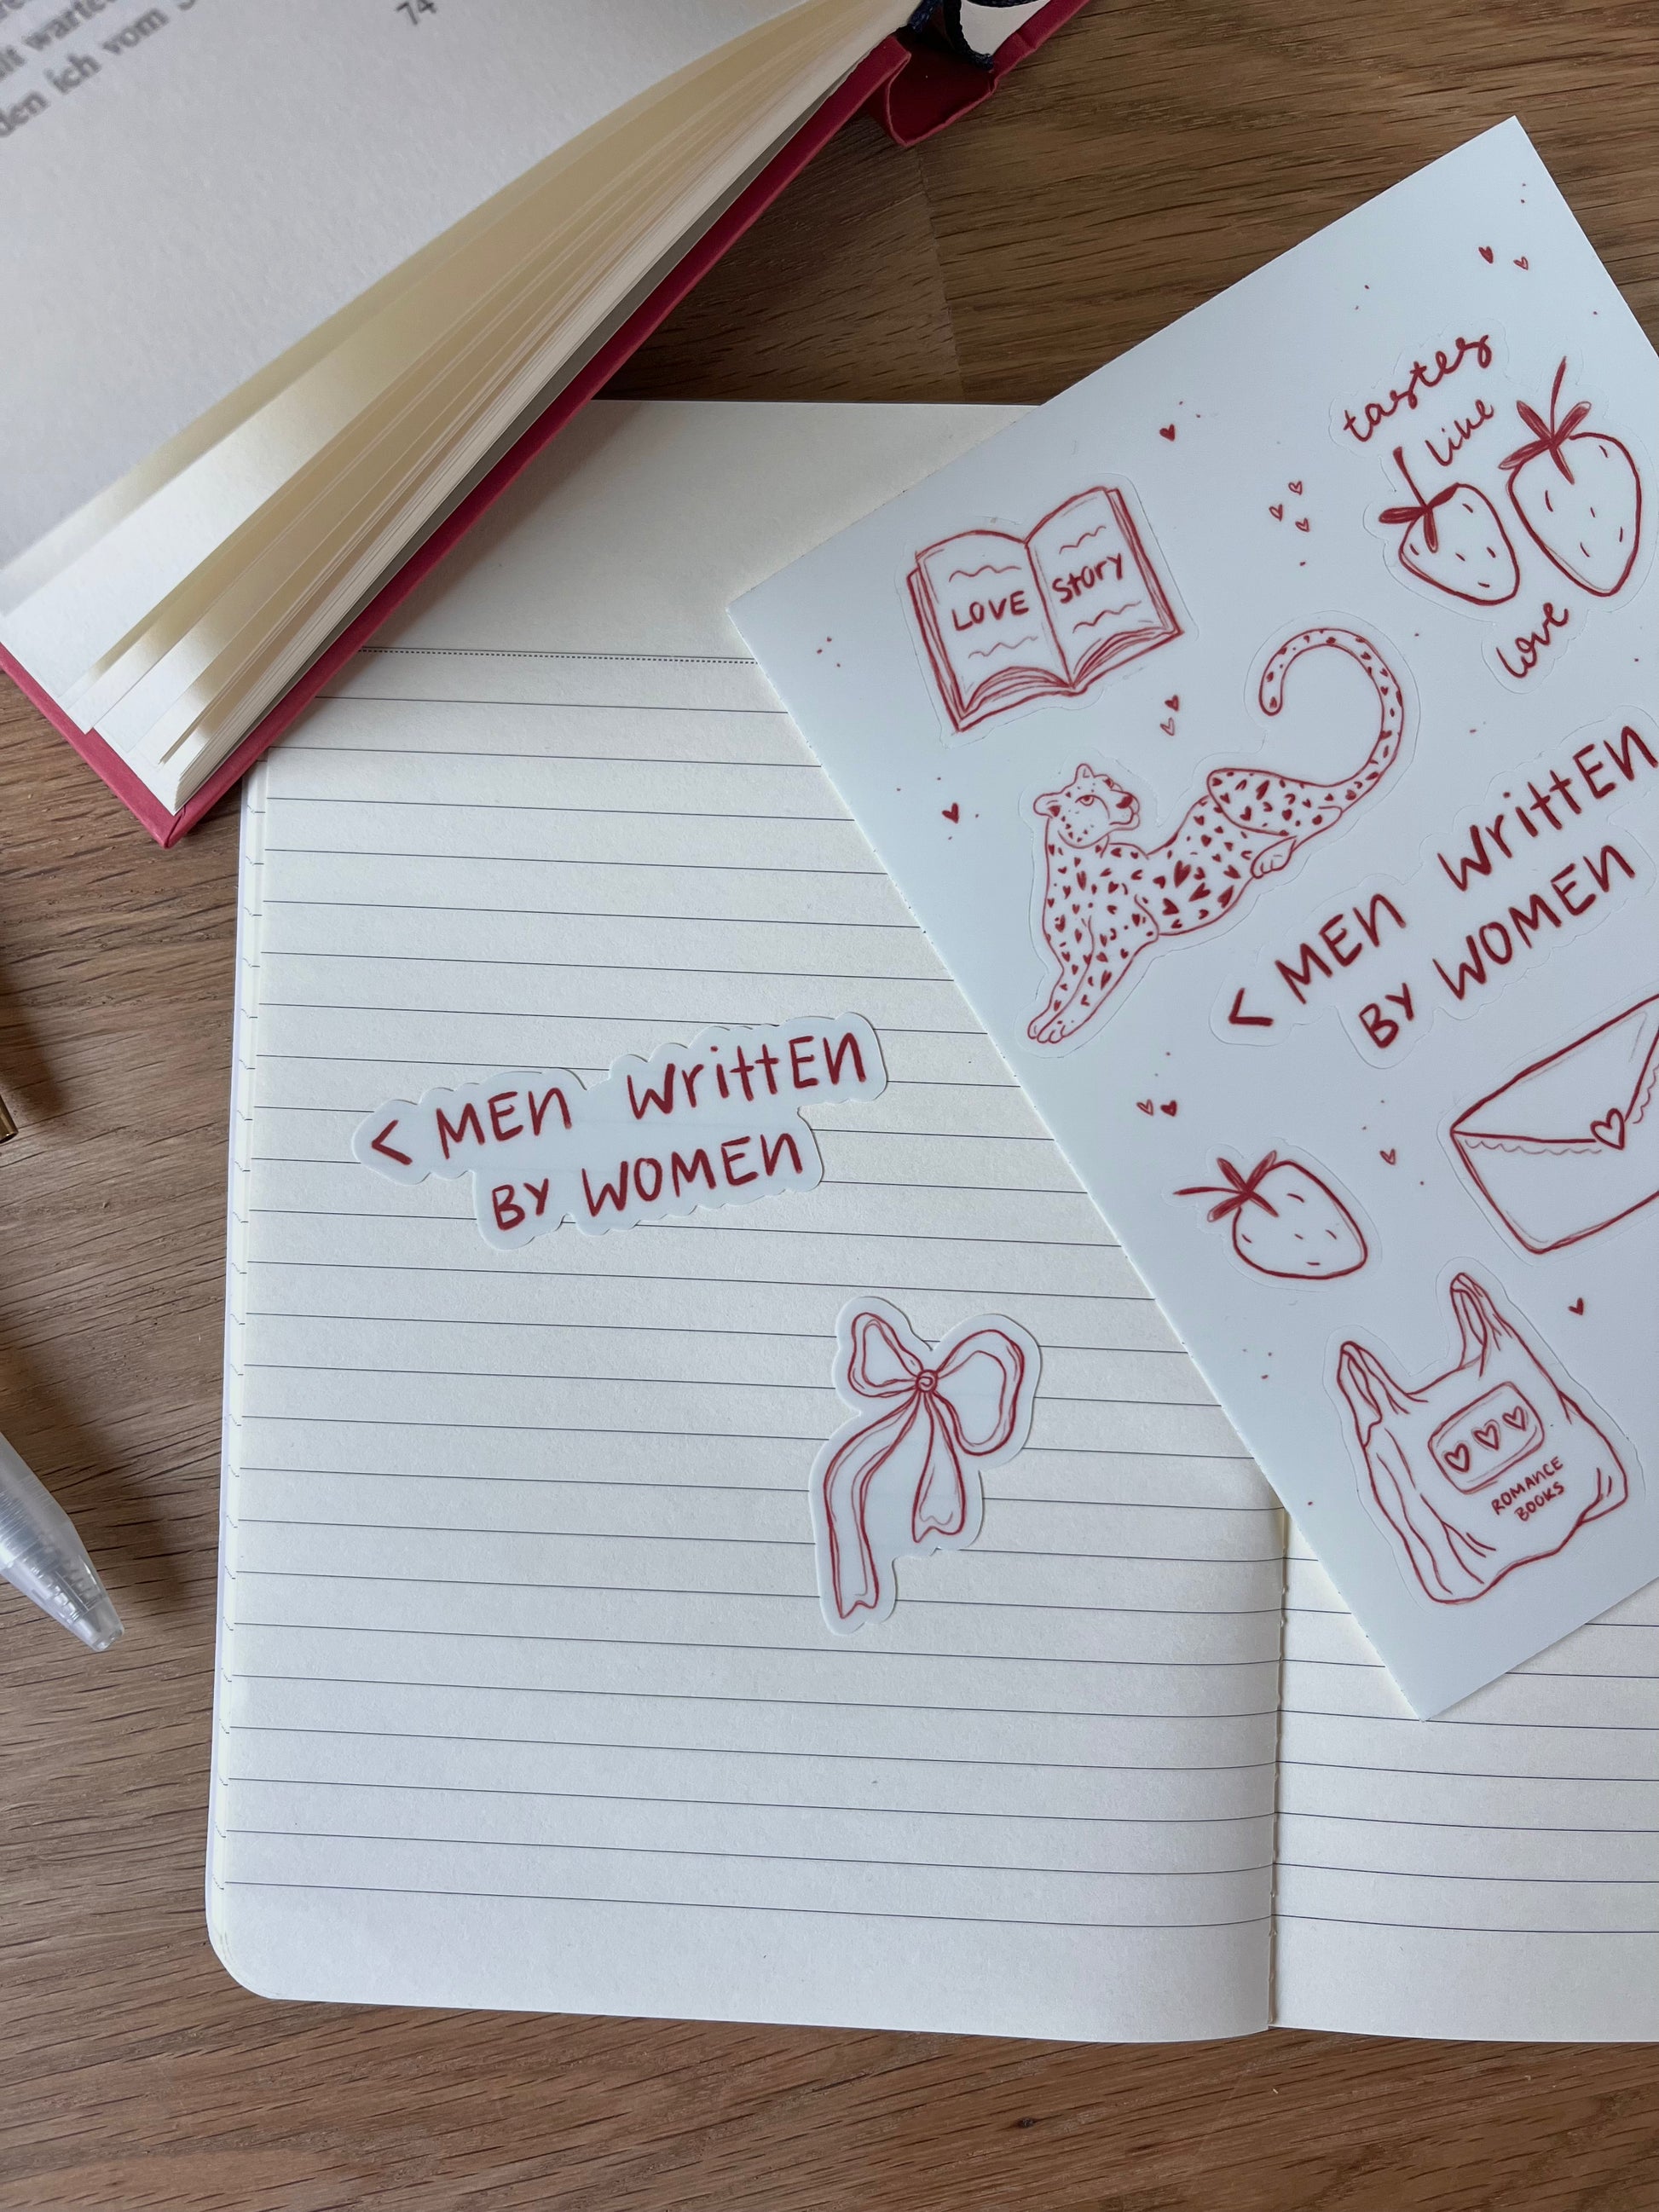 74
warte
den ich vom
tastes
like
love
LOVE Story
< MEN WrittEN
BY WOMEN
< MEN WrittEN
BY WOMEN
ROMANCE
BOOKS